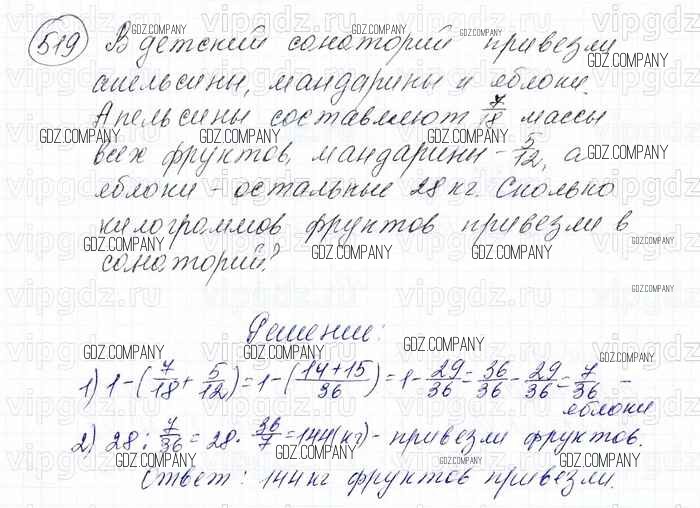 519 В детский санаторий привезли
апельсины, мандарины и яблоки.
Апельсины составляют 7/18 массы
всех фруктов, мандарины - 5/12, а
яблоки - остальные 28 кг. Сколько
килограммов фруктов привезли в
санаторий?
Решение:
1) 1-(7/18+5/12)=1-(14+15/36)=1-29/36=36/36-29/36=7/36 -
яблоки
2) 28:7/36=28·36/7=144(кг)- привезли фруктов.
Ответ: 144 кг фруктов привезли.
GDZ.COMPANY
vipgdz.ru